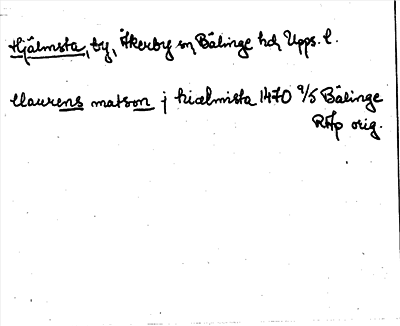 Hjälmsta, by, Åkerby sn Bälinge hd Upps. l.
laurens matson j hiælmista 1470 9/5 Bälinge
RAp orig.